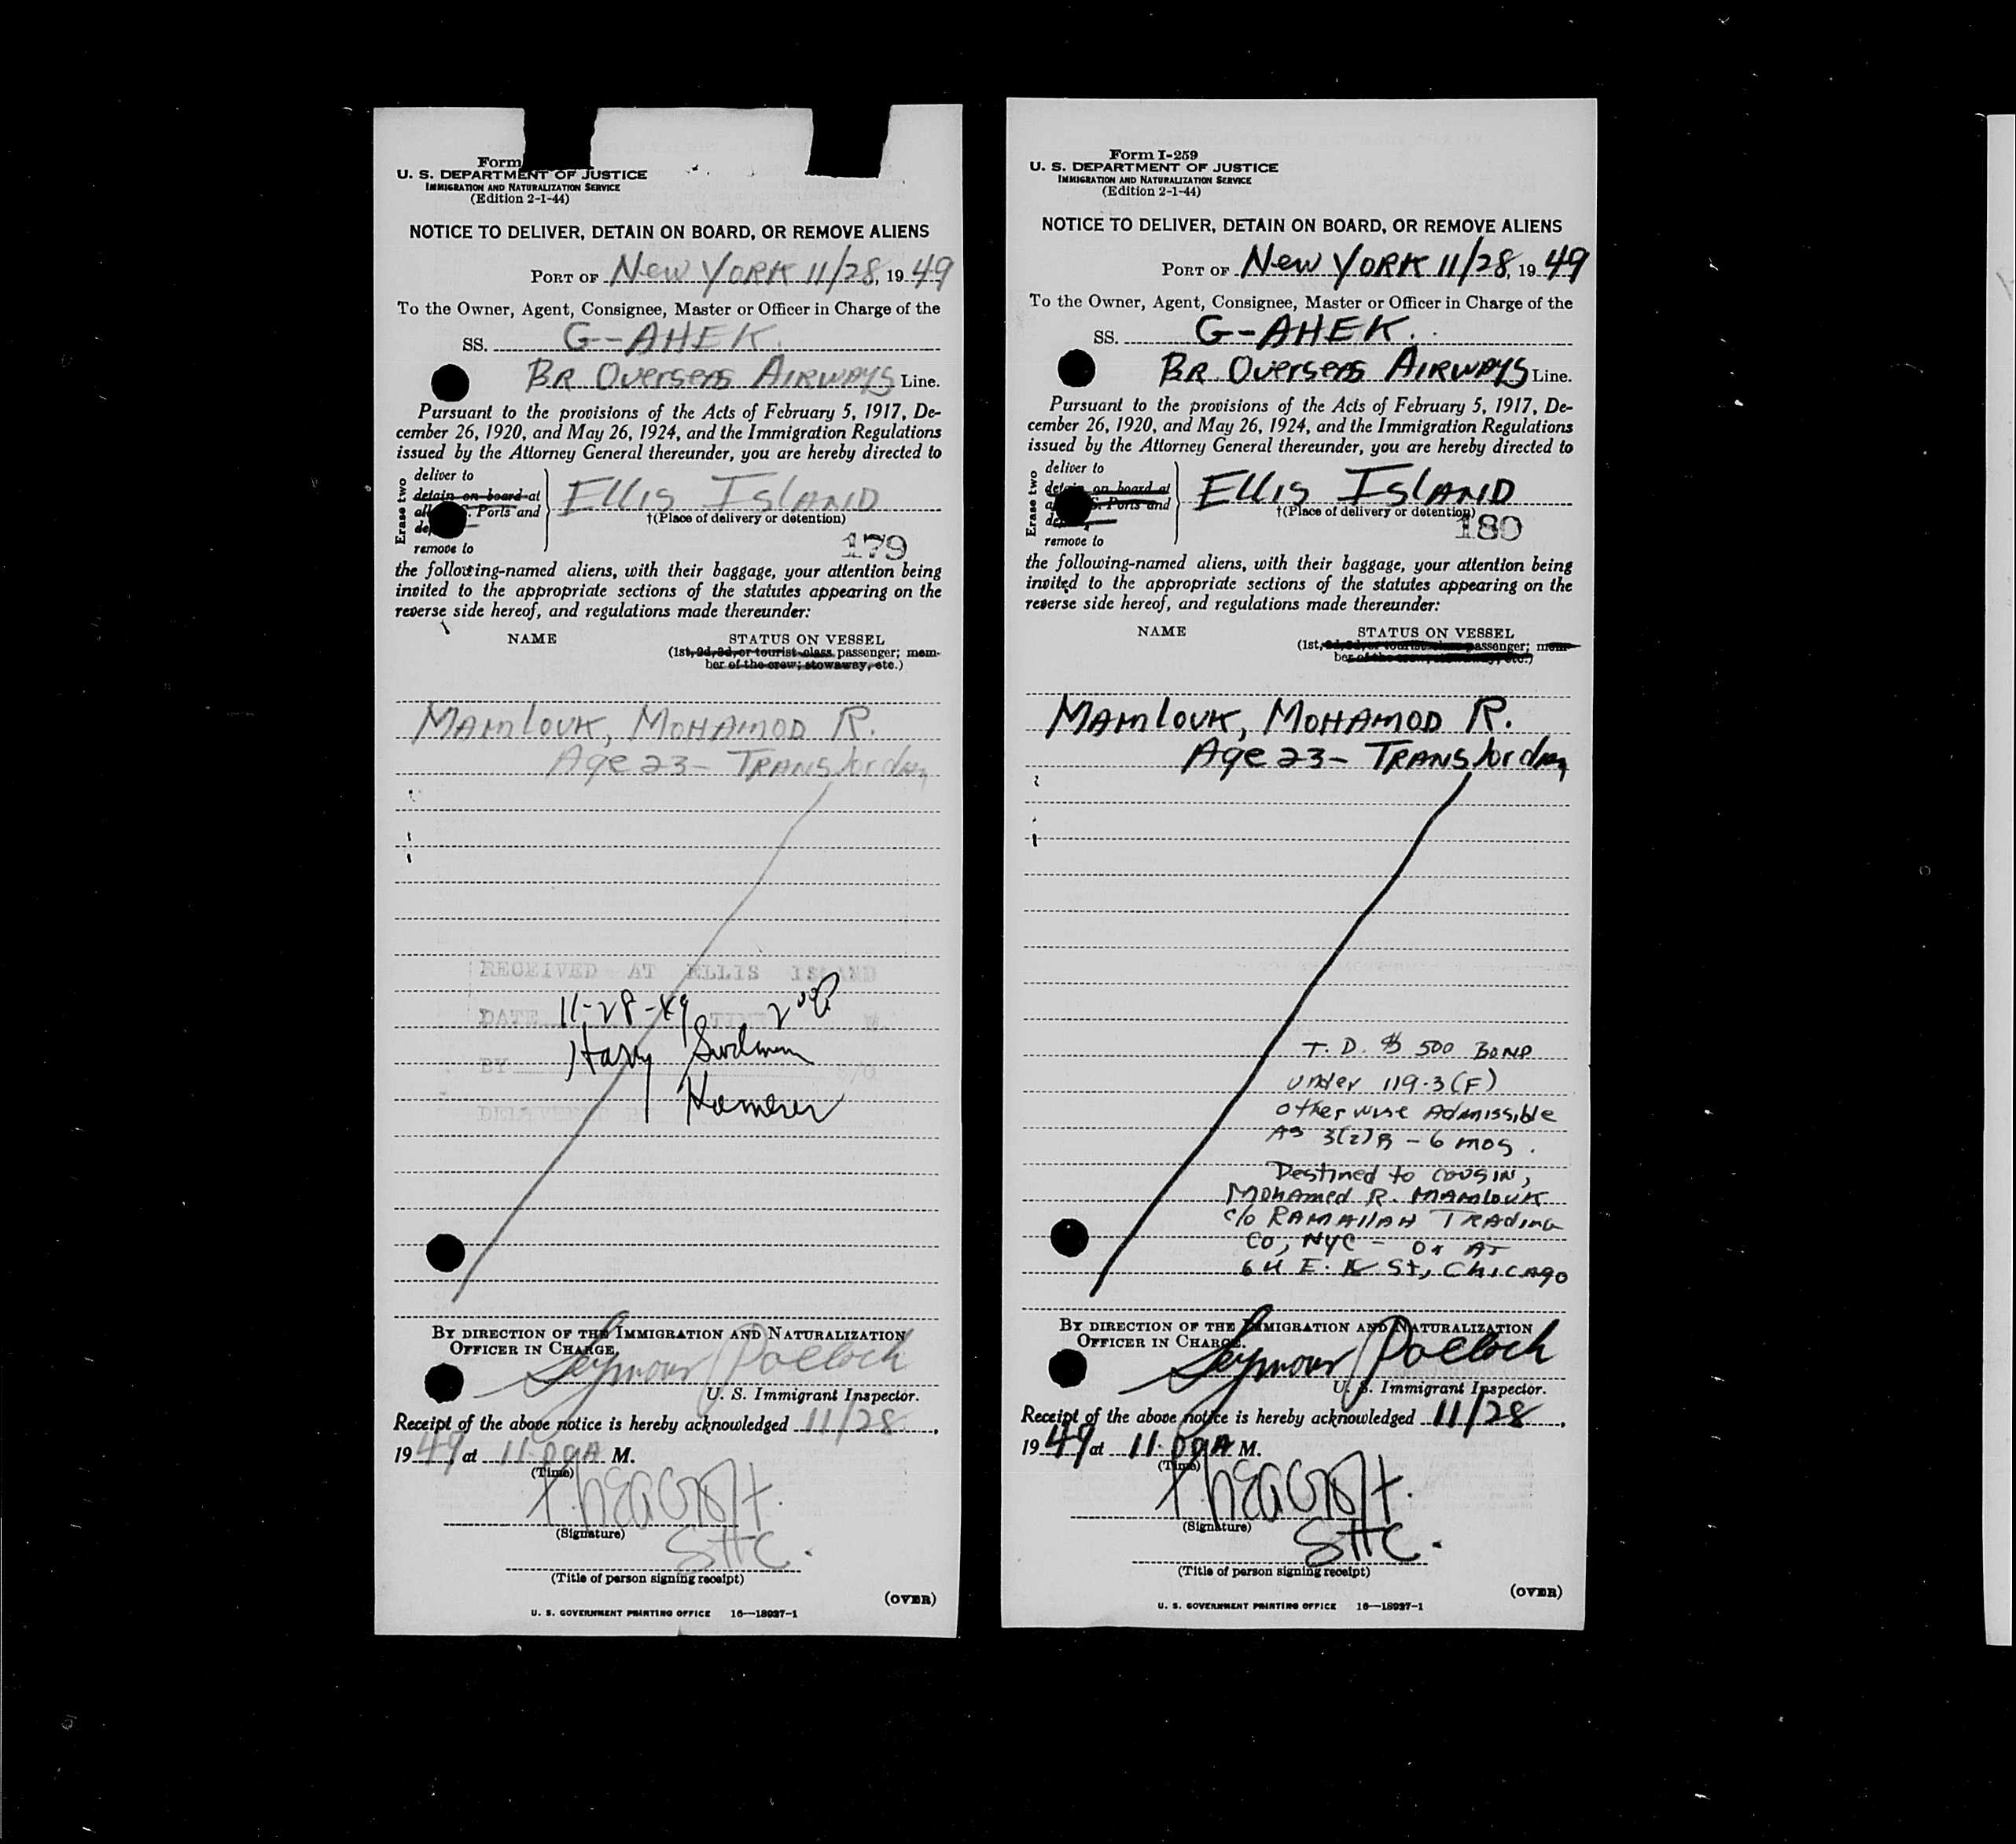 Form
U. S. DEPARTMENT OF JUSTICE
IMMIGRATION AND NATURALIZATION SERVICE
(Edition 2-1-44)
NOTICE TO DELIVER, DETAIN ON BOARD, OR REMOVE ALIENS
PORT OF New YORK 11/28, 1949
To the Owner, Agent, Consignee, Master or Officer in Charge of the
SS. G-AHEK.
BR Overseas AIRWAYS Line.
Pursuant to the provisions of the Acts of February 5, 1917, De-
cember 26, 1920, and May 26, 1924, and the Immigration Regulations
issued by the Attorney General thereunder, you are hereby directed to
Erase two
deliver to
detain on board at
Ports and
remove to
ELLIS ISLAND
†(Place of delivery or detention)
179
the following-named aliens, with their baggage, your attention being
invited to the appropriate sections of the statutes appearing on the
reverse side hereof, and regulations made thereunder:
NAME STATUS ON VESSEL
(1st, 2d, 3d, or tourist-class passenger; mem-
ber of the crew; stowaway, etc.)
MAMLOUK, MOHAMOD R.
Age 23- TRANSJordan
RECEIVED AT ELLIS ISLAND
DATE 11-28-49 TIME 2 00P M.
BY Harry
DELIVERED BY
BY DIRECTION OF THE IMMIGRATION AND NATURALIZATION
OFFICER IN CHARGE.
Seymour Pollock
U. S. Immigrant Inspector.
Receipt of the above notice is hereby acknowledged 11/28,
1949, at 11.00A M.
(Time)
(Signature)
(Title of person signing receipt)
(OVER)
U. S. GOVERNMENT PRINTING OFFICE 16—18937-1
Form I-259
U. S. DEPARTMENT OF JUSTICE
IMMIGRATION AND NATURALIZATION SERVICE
(Edition 2-1-44)
NOTICE TO DELIVER, DETAIN ON BOARD, OR REMOVE ALIENS
PORT OF New YORK 11/28, 1949
To the Owner, Agent, Consignee, Master or Officer in Charge of the
SS. G-AHEK.
BR Overseas AIRWAYS Line.
Pursuant to the provisions of the Acts of February 5, 1917, De-
cember 26, 1920, and May 26, 1924, and the Immigration Regulations
issued by the Attorney General thereunder, you are hereby directed to
Erase two
deliver to
detain on board at
Ports and
remove to
ELLIS ISLAND
†(Place of delivery or detention)
180
the following-named aliens, with their baggage, your attention being
invited to the appropriate sections of the statutes appearing on the
reverse side hereof, and regulations made thereunder:
NAME STATUS ON VESSEL
(1st, 2d, 3d, or tourist-class passenger; mem-
ber of the crew; stowaway, etc.)
MAMLOUK, MOHAMOD R.
Age 23- TRANSJordan
T. D. $ 500 BOND
under 119.3(F)
otherwise Admissible
As 3(2)B - 6 mos.
Destined to cousin,
Mohamed R. MAMLOUK
c/o RAMALLAH TRADing
Co, NYC - or AT
St, Chicago
BY DIRECTION OF THE IMMIGRATION AND NATURALIZATION
OFFICER IN CHARGE.
Seymour Pollock
U. S. Immigrant Inspector.
Receipt of the above notice is hereby acknowledged 11/28,
1949 at 11.00A M.
(Time)
(Signature)
(Title of person signing receipt)
(OVER)
U. S. GOVERNMENT PRINTING OFFICE 16—18937-1